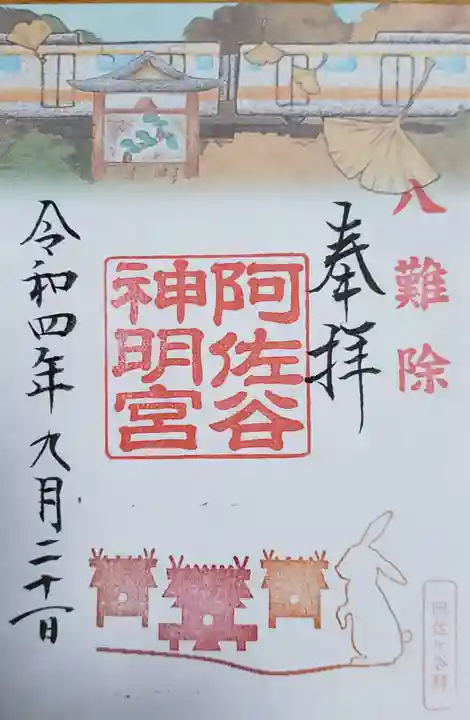 八難除
奉拝
阿佐谷
神明宮
令和四年九月二十一日
阿佐ケ谷駅